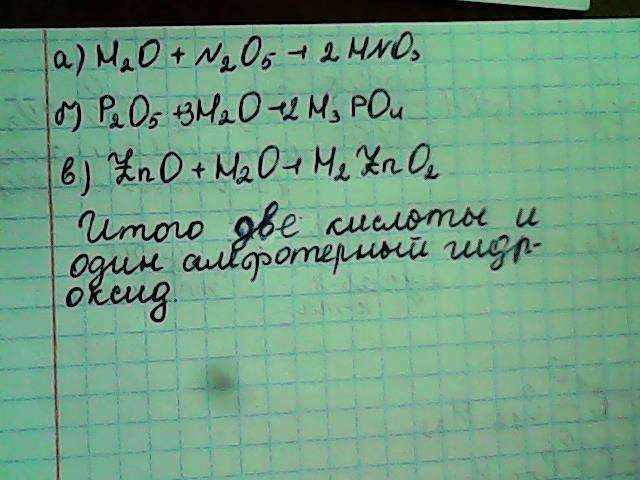 а) H₂O + N₂O₅ → 2 HNO₃
б) P₂O₅ + 3H₂O → 2 H₃PO₄
в) ZnO + H₂O → H₂ZnO₂
Итого две кислоты и
один амфотерный гидр-
оксид.